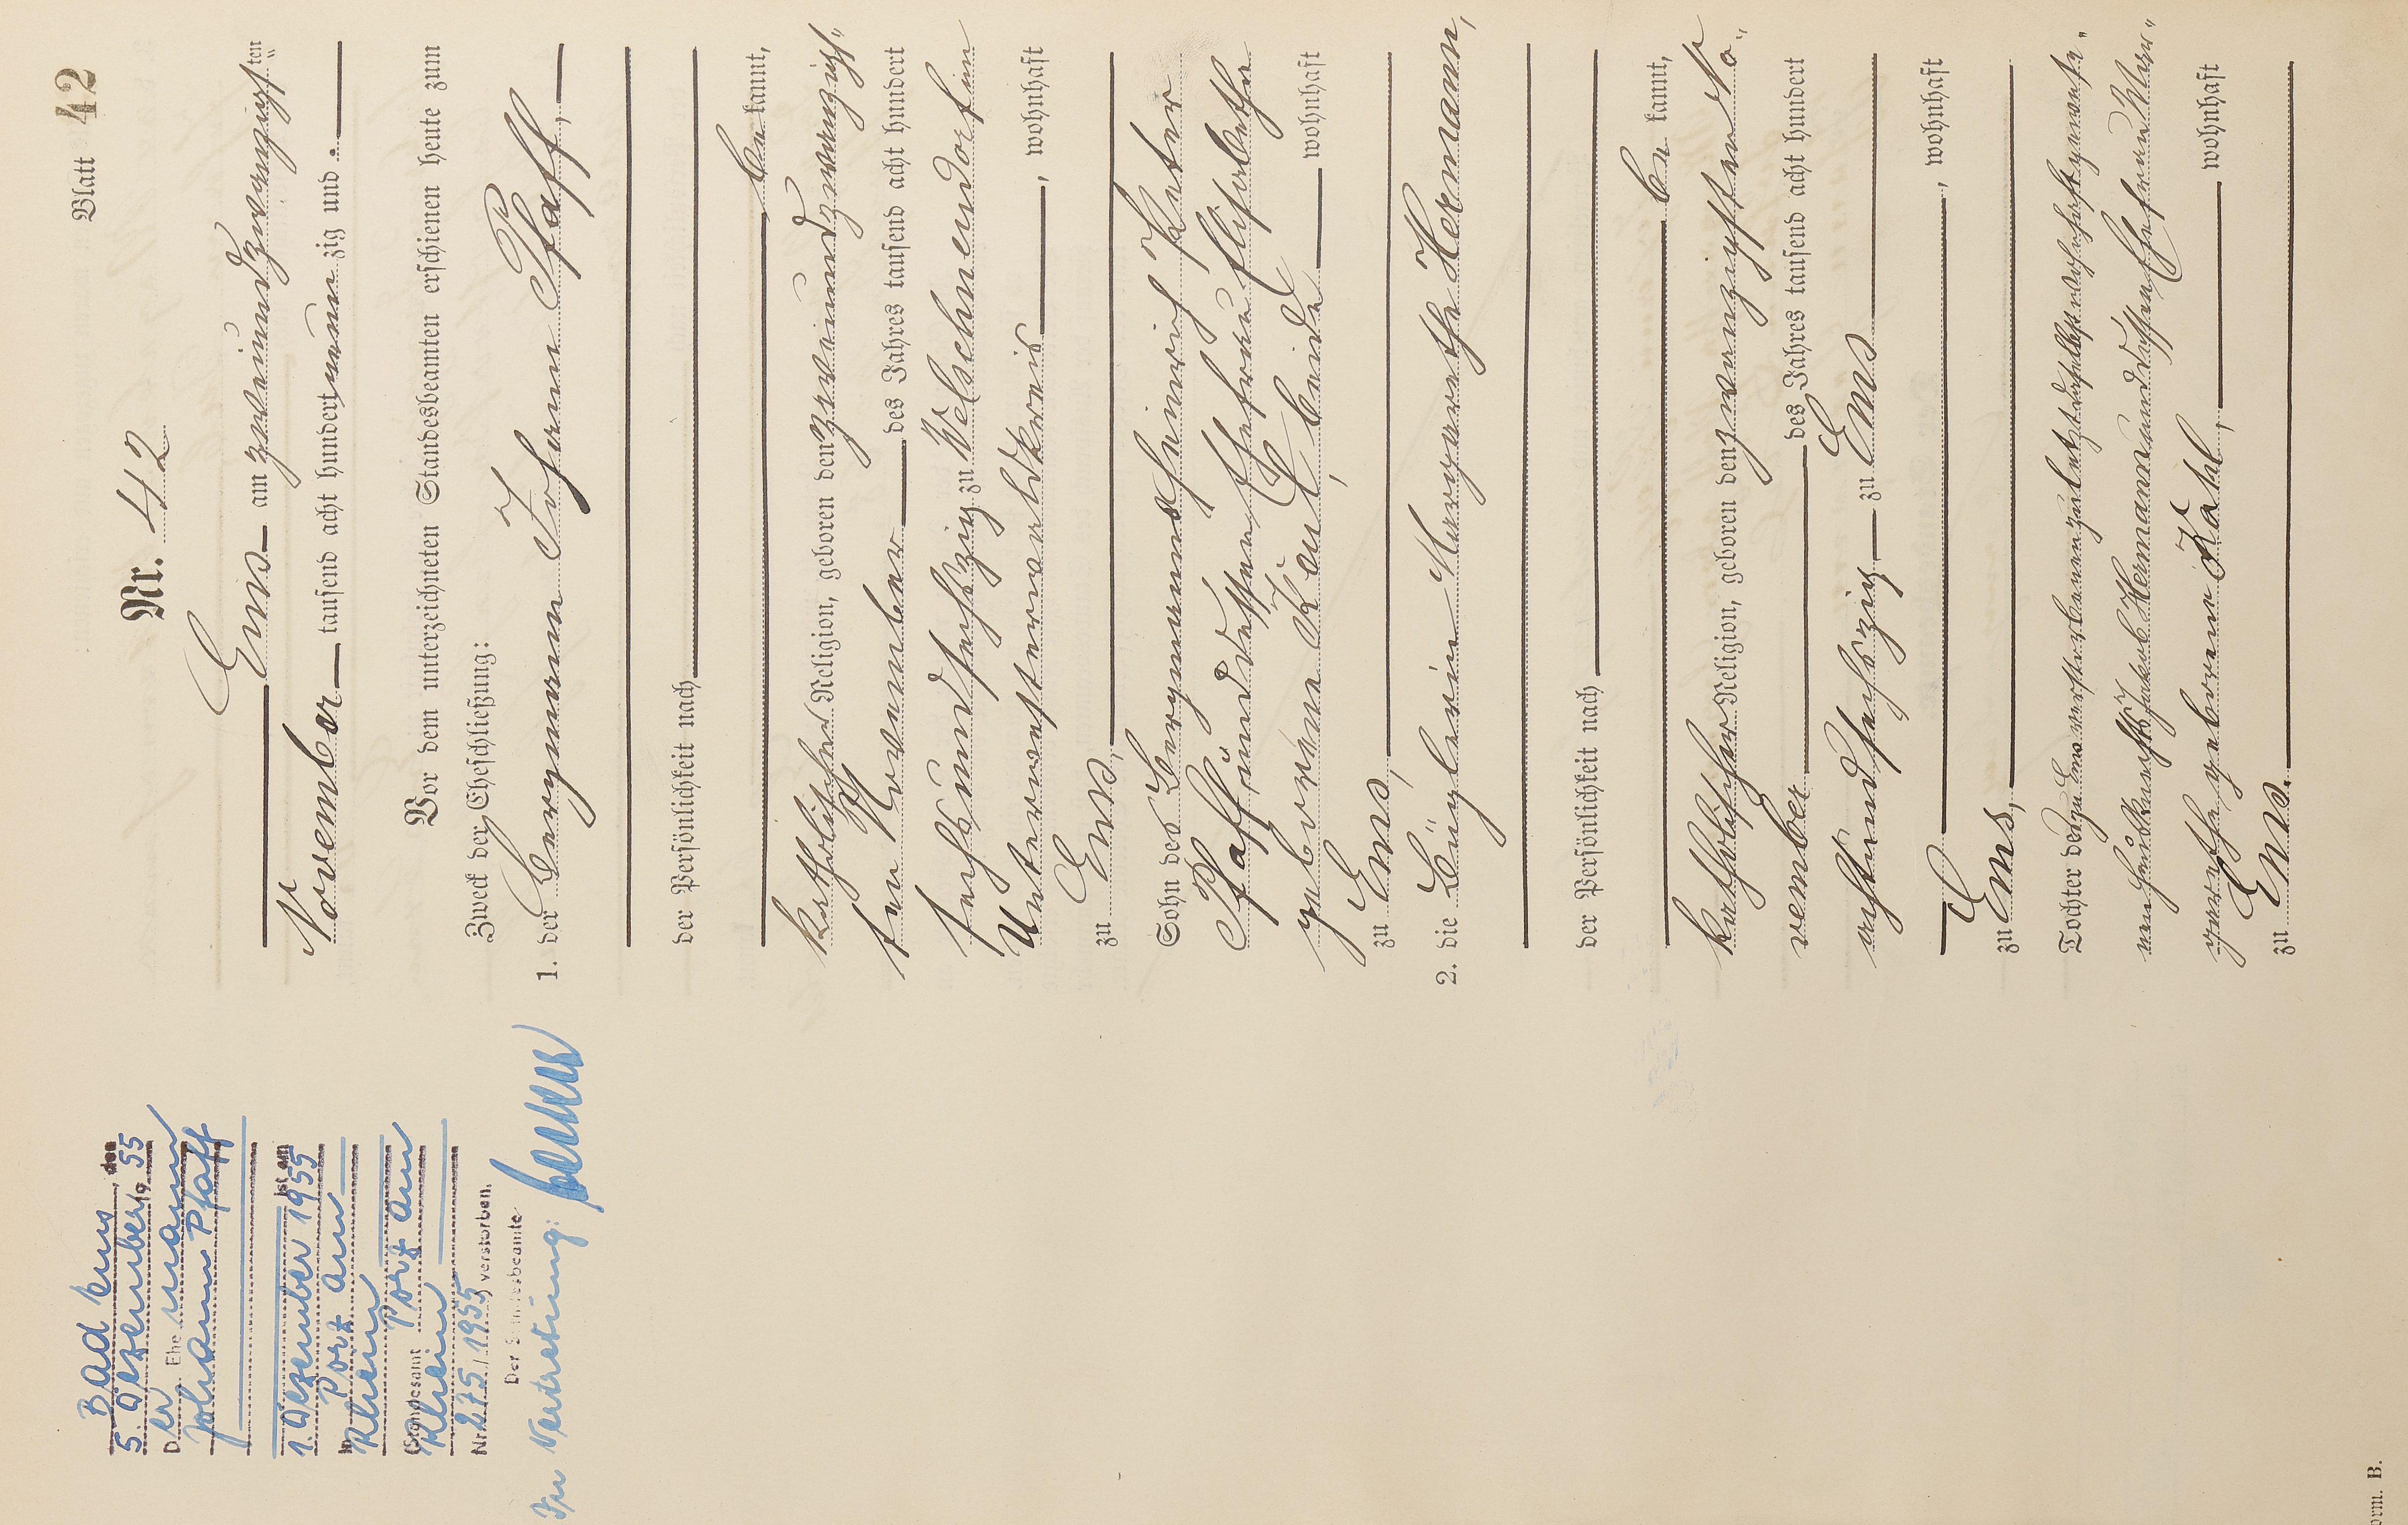 Blatt 42
Nr. 42
Ems am zweiundzwanzigsten
November tausend acht hundert neunzig und .
Vor dem unterzeichneten Standesbeamten erschienen heute zum
Zweck der Eheschließung:
1. der Bergmann Johann Pfaff,
der Persönlichkeit nach
be kannt,
katholischer Religion, geboren den zweiundzwanzig"
sten November des Jahres tausend acht hundert
sechsundsechszig zu Welschneudorf im
Unterwesterwaldkreis, wohnhaft
zu Ems,
Sohn des Bergmanns Heinrich Peter
Pfaff und dessen Ehefrau Elisabetha
geborene Kaul, beide wohnhaft
zu Ems,
2. die Büglerin Margarethe Hermann,
der Persönlichkeit nach
be kannt,
katholischer Religion, geboren den zwanzigsten No"
vember des Jahres tausend acht hundert
achtundsechszig zu Ems
, wohnhaft
zu Ems,
Tochter der zu Ems verstorbenen zuletzt daselbst wohnhaft gewese"
nen Jakob Hermann und dessen Ehefrau Mar"
garethe geborene Kahl, wohnhaft
zu Ems.
Bad Ems, den
5. Dezember 1955
Der Ehemann
Johann Pfaff
ist am
1. Dezember 1955
in Porz am
Rhein
(Standesamt Porz am
Rhein
Nr. 275/1955 verstorben.
Der Standesbeamte
In Vertretung:
orm. B.